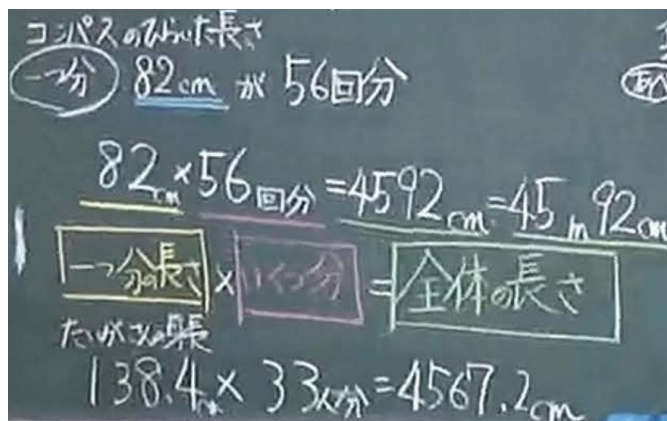 コンパスのひらいた長さ
一つ分 82cm が 56回分
82cm×56回分=4592cm=45m92cm
一つ分の長さ×いくつ分=全体の長さ
たいがさんの身長
138.4cm×33人分=4567.2cm